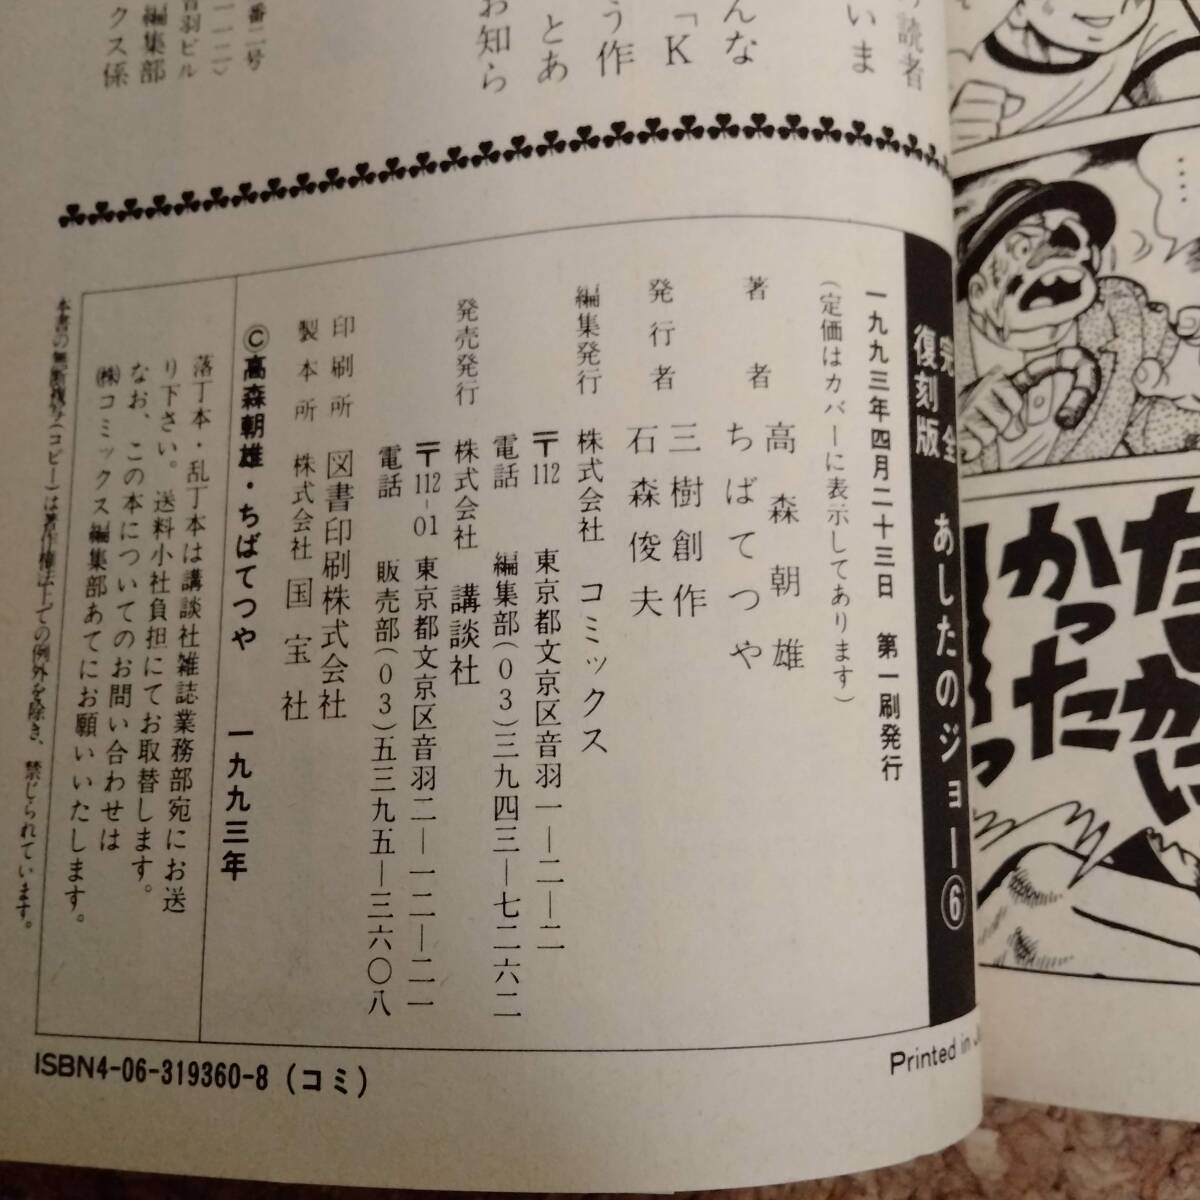 読者
いま
んな
「K
う作
とあ
お知ら
番二号
音羽ビル
一一二)
編集部
クス係
完全
復刻版
あしたのジョー⑥
一九九三年四月二十三日 第一刷発行
(定価はカバーに表示してあります)
著者 高森朝雄
ちばてつや
発行者 三樹創作
石森俊夫
編集発行 株式会社 コミックス
〒112 東京都文京区音羽一―二―二
電話 編集部(03)三九四三―七二六二
発売発行 株式会社 講談社
〒112-01 東京都文京区音羽二―一二―二一
電話 販売部(03)五三九五―三六〇八
印刷所 図書印刷株式会社
製本所 株式会社 国宝社
©高森朝雄・ちばてつや 一九九三年
落丁本・乱丁本は講談社雑誌業務部宛にお送
り下さい。送料小社負担にてお取替します。
なお、この本についてのお問い合わせは
㈱コミックス編集部あてにお願いいたします。
本書の無断複写(コピー)は著作権法上での例外を除き、禁じられています。
ISBN4-06-319360-8(コミ)
Printed in J
……
かった